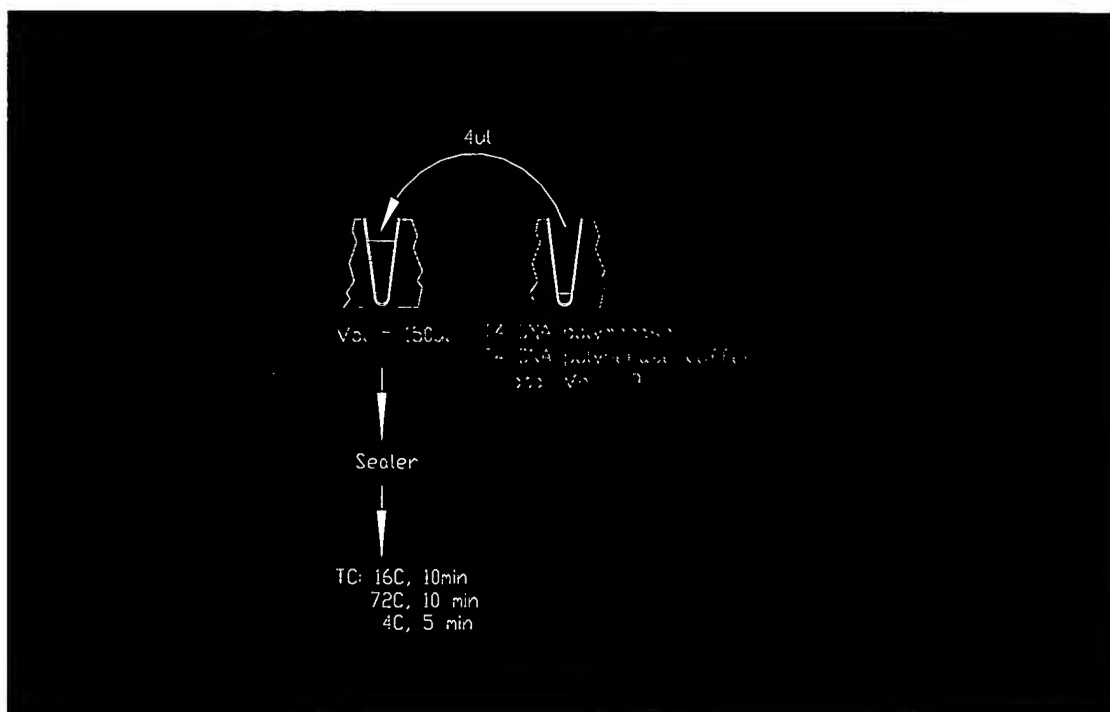 4ul
Vol = 150ul
T4 DNA polymerase
T4 DNA polymerase buffer
Sealer
TC: 16C, 10min
72C, 10 min
4C, 5 min